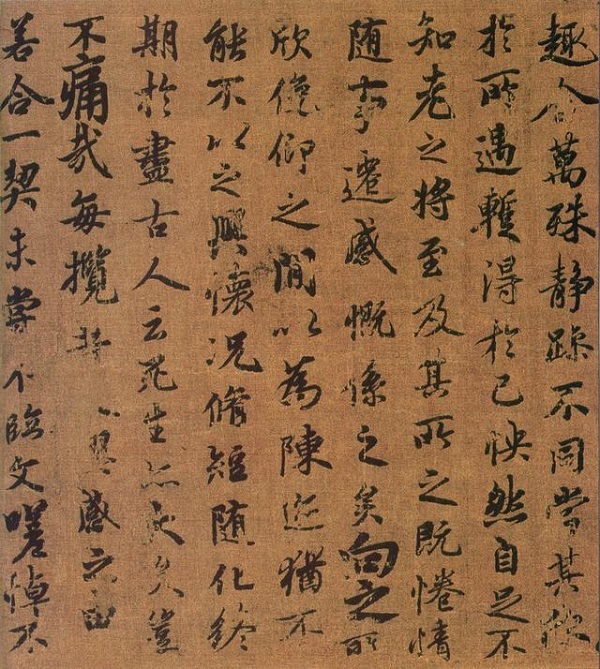 趣舍萬殊静躁不同當其欣
於所遇蹔得於己怏然自足不
知老之將至及其所之既惓情
随事遷感慨係之矣向之所
欣俛仰之閒以為陳迹猶不
能不以之興懷況脩短随化終
期於盡古人云死生亦大矣豈
不痛哉每攬昔人興感之由
若合一契未嘗不臨文嗟悼不